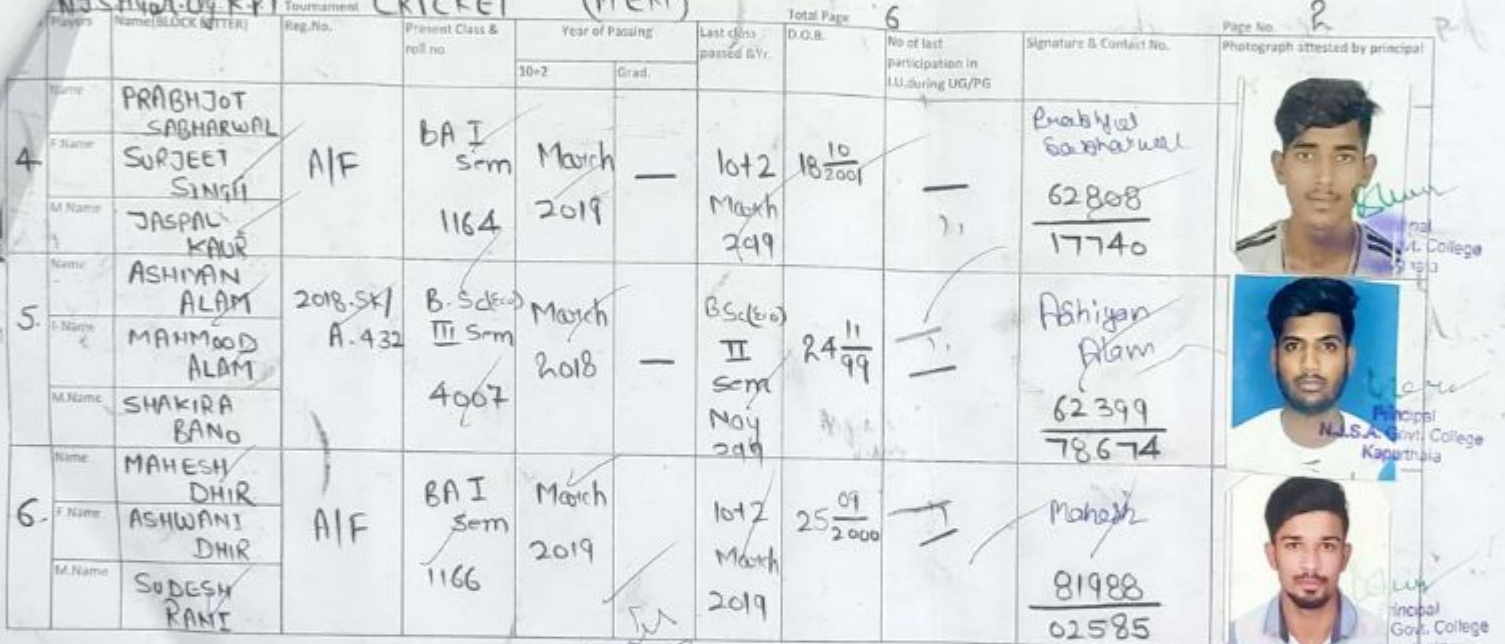 Tournament CRICKET (MEN) Total Page 6 Page No. 2
Players Name(BLOCK LETTER) Reg.No. Present Class & roll no Year of Passing 10+2 Grad. Last class passed &Yr. D.O.B. No of last participation in I.U.during UG/PG Signature & Contact No. Photograph attested by principal
4.
Name PRABHJOT SABHARWAL
F.Name SURJEET SINGH
M.Name JASPAL KAUR
A/F
BA I Sem
1164
March 2019
—
10+2
March
18 10/2001
—
Sabharwal
62808
17740
Govt. College
5.
Name ASHIYAN ALAM
F.Name MAHMOOD ALAM
M.Name SHAKIRA BANO
2018.SK/
A.432
B.Sc(Eco)
III Sem
4007
March
2018
—
BSc(Eco)
II
Sem
24 11/99
Ashiyan
Alam
62399
78674
Principal
N.J.S.A. Govt. College
Kapurthala
6.
Name MAHESH DHIR
F.Name ASHWANI DHIR
M.Name SUDESH RANI
A/F
BA I
Sem
1166
March
2019
10+2
March
2019
25 09/2000
Mahesh
81988
02585
Principal
Govt. College